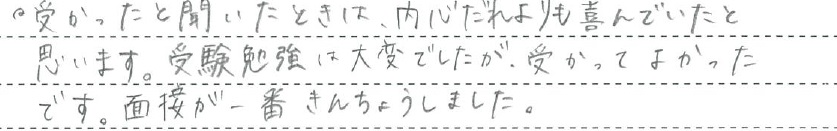 。受かったと聞いたときは、内心だれよりも喜んでいたと
思います。受験勉強は大変でしたが、受かってよかった
です。面接が一番きんちょうしました。